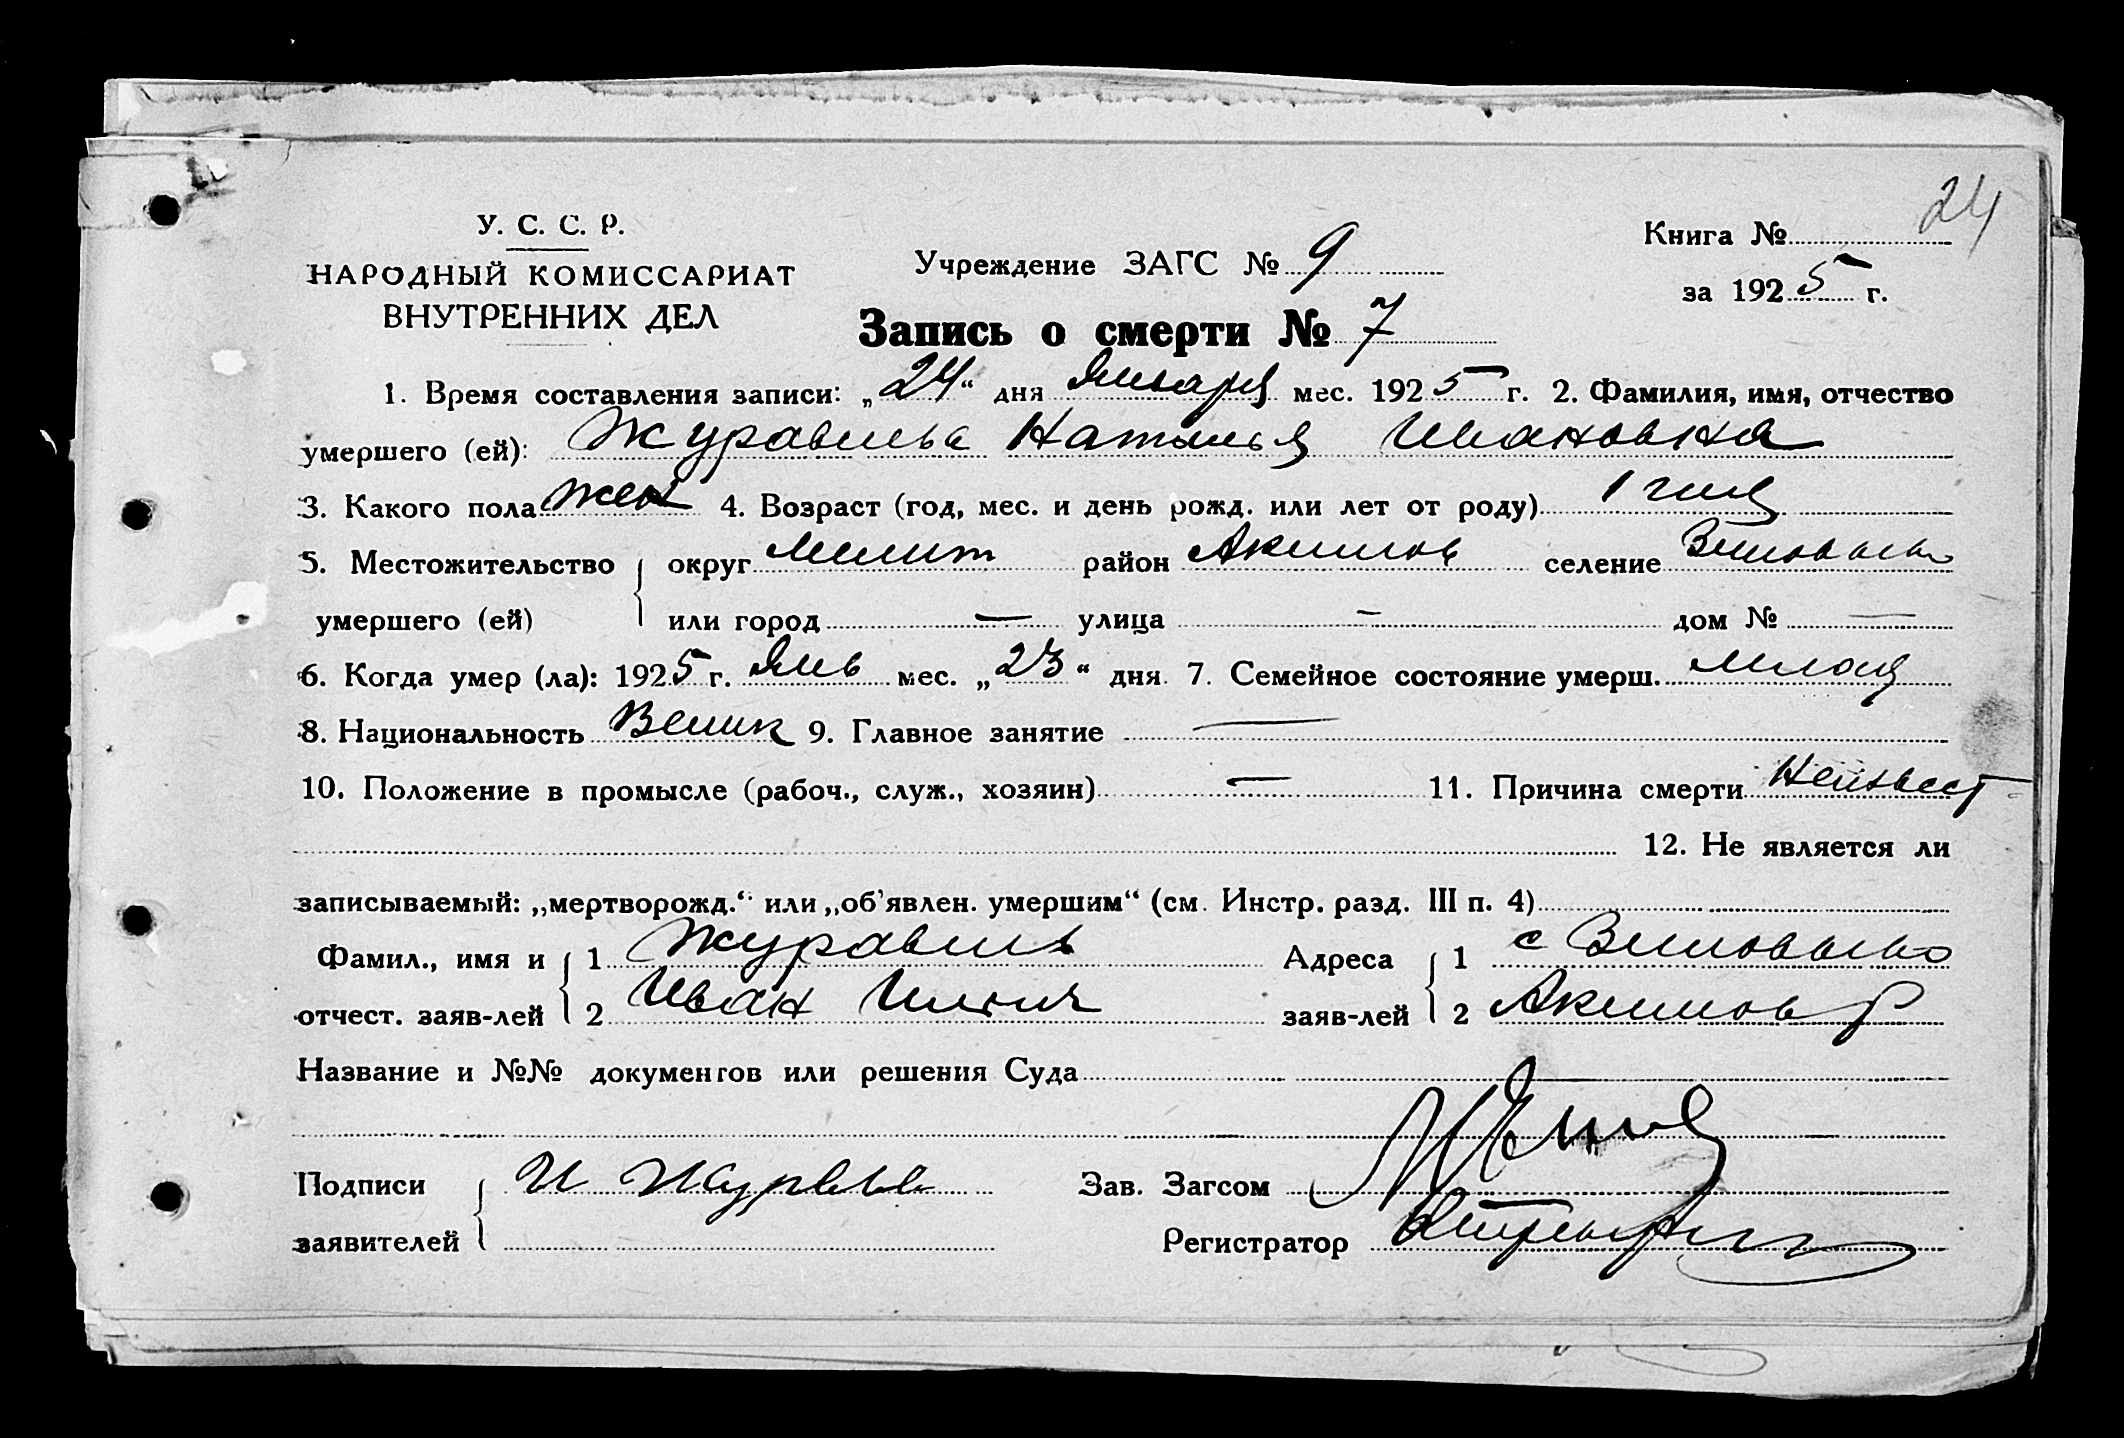 24
У. С. С. Р.
НАРОДНЫЙ КОМИССАРИАТ
ВНУТРЕННИХ ДЕЛ
Учреждение ЗАГС № 9
Книга №
за 1925 г.
Запись о смерти № 7
1. Время составления записи: „24“ дня Января мес. 1925 г. 2. Фамилия, имя, отчество
умершего (ей): Наталья Ивановна
3. Какого пола жен 4. Возраст (год, мес. и день рожд. или лет от роду) 1
5. Местожительство округ Мелит район Акимов селение
умершего (ей) или город — улица — дом № —
6. Когда умер (ла): 1925 г. Янв мес. „23“ дня. 7. Семейное состояние умерш.
8. Национальность Велик 9. Главное занятие —
10. Положение в промысле (рабоч., служ., хозяин) — 11. Причина смерти Неизвест
12. Не является ли
записываемый: „мертворожд.“ или „об’явлен. умершим“ (см. Инстр. разд. III п. 4)
Фамил., имя и 1 Журавель Адреса 1 с
отчест. заяв-лей 2 Иван Ильич заяв-лей 2 Акимов р
Название и №№ документов или решения Суда
Подписи И Зав. Загсом
заявителей Регистратор